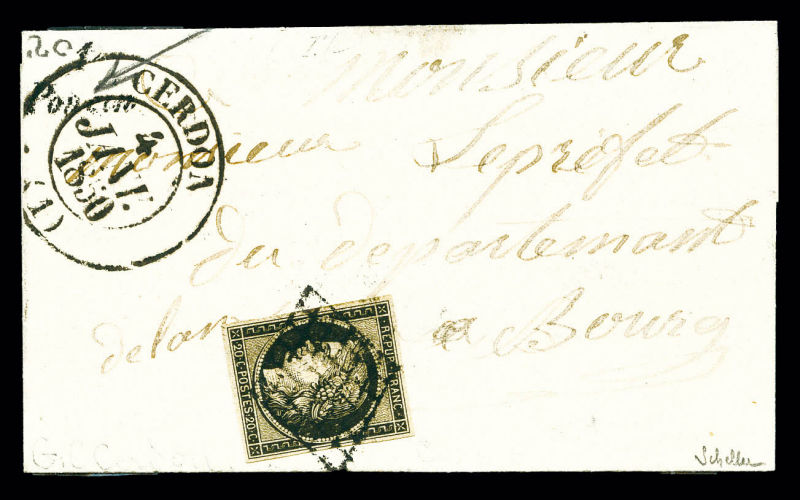 20
CERDON
(1)
4
JANV.
1850
Monsieur
monsieur Leprefet
du departemant
delain a Bourg
REPUB. FRANC.
20 c. POSTES 20 c.
Scheller